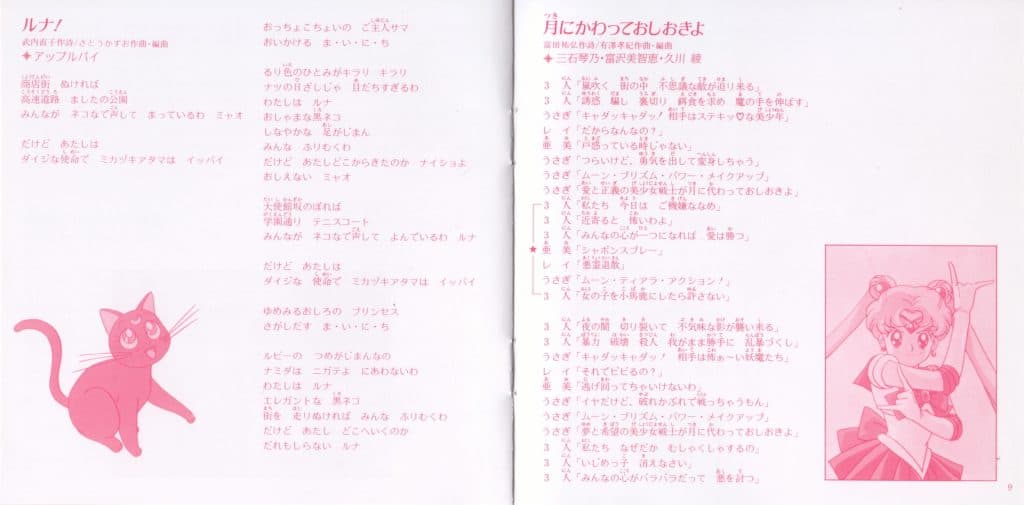 ルナ!
武内直子作詩/さとうかずお作曲・編曲
✦アップルパイ
商店街 ぬければ
高速道路 ましたの公園
みんなが ネコなで声して まっているわ ミャオ
だけど あたしは
ダイジな使命で ミカヅキアタマは イッパイ
おっちょこちょいの ご主人サマ
おいかける ま・い・に・ち
るり色のひとみがキラリ キラリ
ナツのひざしじゃ 目だちすぎるわ
わたしは ルナ
おしゃまな黒ネコ
しなやかな 足がじまん
みんな ふりむくわ
だけど あたしどこからきたのか ナイショよ
おしえない ミャオ
大使館坂のぼれば
学園通り テニスコート
みんなが ネコなで声して よんでいるわ ルナ
だけど あたしは
ダイジな 使命で ミカヅキアタマは イッパイ
ゆめみるおしろの プリンセス
さがしだす ま・い・に・ち
ルビーの つめがじまんなの
ナミダは ニガテよ にあわないわ
わたしは ルナ
エレガントな 黒ネコ
街を 走りぬければ みんな ふりむくわ
だけど あたし どこへいくのか
だれもしらない ルナ
月にかわっておしおきよ
冨田祐弘作詩/有澤孝紀作曲・編曲
✦三石琴乃・富沢美智恵・久川 綾
3 人「嵐吹く 街の中 不思議な敵が迫り来る」
3 人「誘惑 騙し 裏切り 餌食を求め 魔の手を伸ばす」
うさぎ「キャダッキャダッ! 相手はステキッ♡な美少年」
レ イ「だからなんなの?」
亜 美「戸惑っている時じゃない」
うさぎ「つらいけど、勇気を出して変身しちゃう」
うさぎ「ムーン・プリズム・パワー・メイクアップ」
うさぎ「愛と正義の美少女戦士が月に代わっておしおきよ」
3 人「私たち 今日は ご機嫌ななめ」
3 人「近寄ると 怖いわよ」
3 人「みんなの心が一つになれば 愛は勝つ」
★亜 美「シャボンスプレー」
レ イ「悪霊退散」
うさぎ「ムーン・ティアラ・アクション!」
3 人「女の子を小馬鹿にしたら許さない」
3 人「夜の闇 切り裂いて 不気味な影が襲い来る」
3 人「暴力 破壊 殺人 我がまま勝手に 乱暴づくし」
うさぎ「キャダッキャダッ! 相手は怖ぁ〜い妖魔たち」
レ イ「それでビビるの?」
亜 美「逃げ回ってちゃいけないわ」
うさぎ「イヤだけど、破れかぶれで戦っちゃうもん」
うさぎ「ムーン・プリズム・パワー・メイクアップ」
うさぎ「夢と希望の美少女戦士が月に代わっておしおきよ」
3 人「私たち なぜだか むしゃくしゃするの」
3 人「いじめっ子 消えなさい」
3 人「みんなの心がバラバラだって 悪を討つ」
9